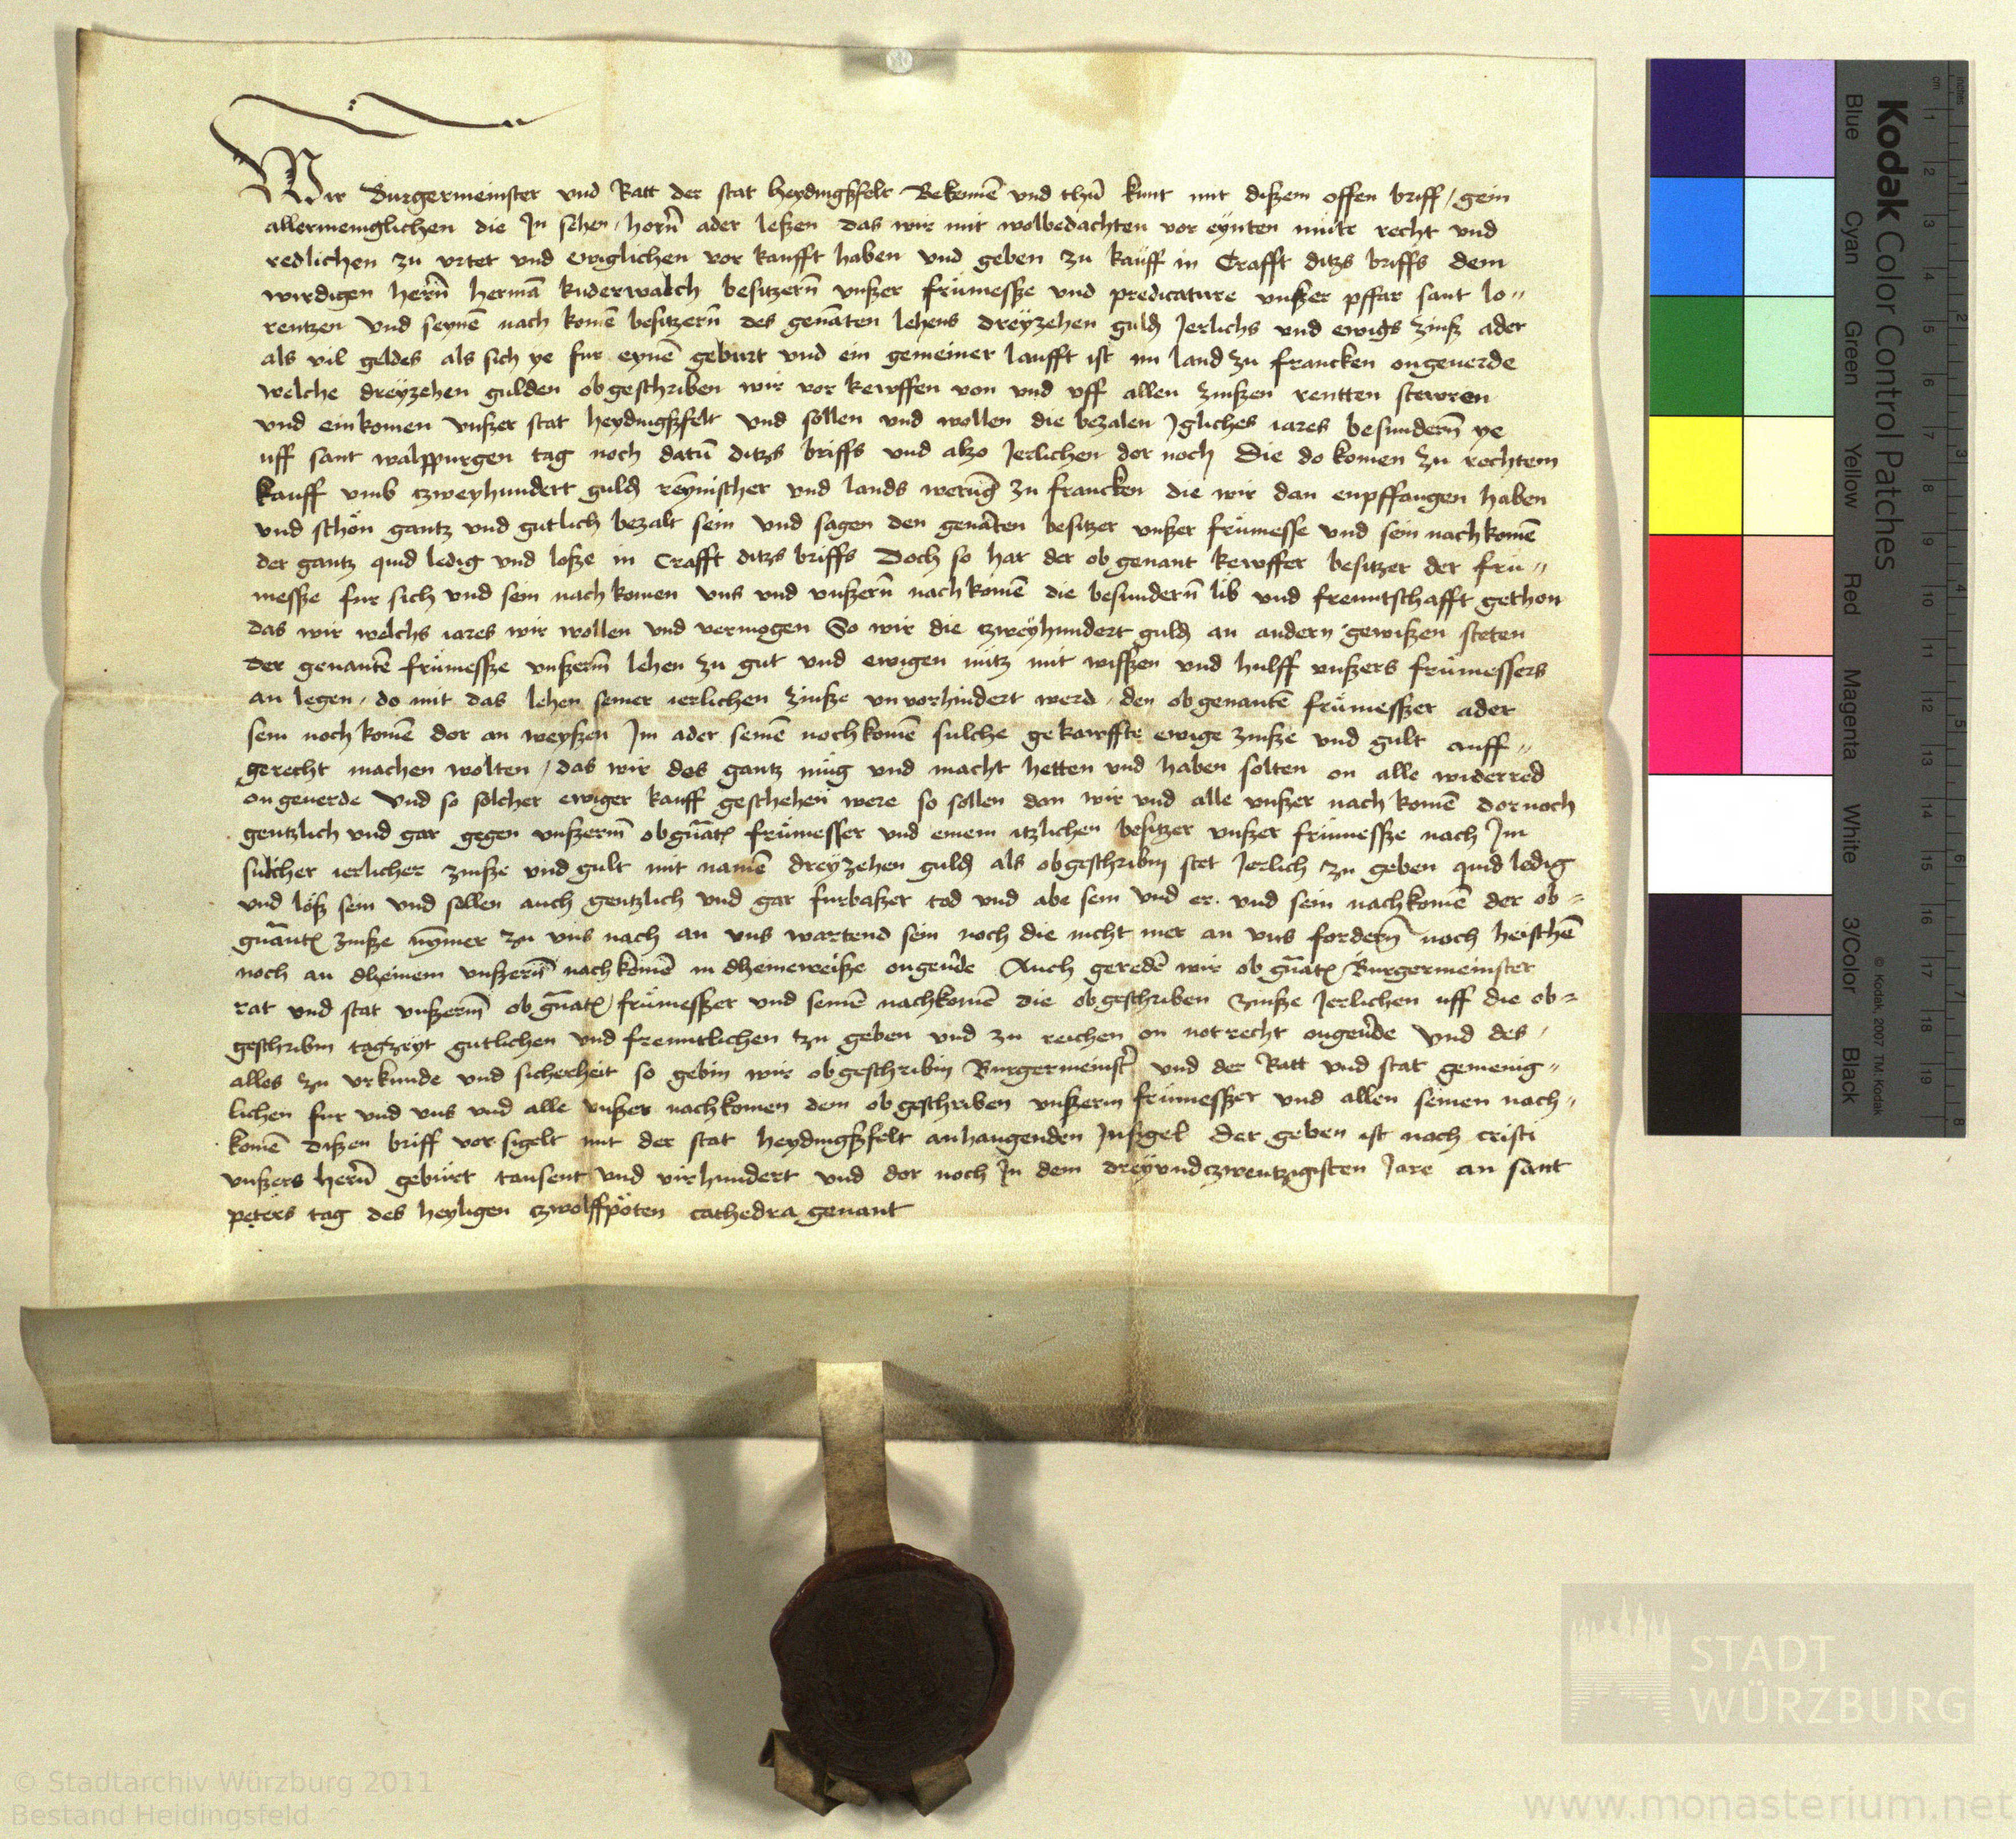 Wir Burgermeinster vnd Ratt der stat heydingßfelt Bekennē vnd thū kunt mit dißem offen briff / gein
allermeniglichen die Jn sehen / horn̄ ader leßen das wir mit wolbedachten vor eynten mute recht vnd
redlichen zu vrtet vnd ewiglichen vor kaufft haben vnd geben zu kauff in Crafft ditzs briffs dem
wirdigen hern̄ hermā kuderwalch besitzern̄ vnßer frümeßse vnd predicature vnßer pffar sant lo〃
rentzen vnd seynē nach komē besitzern̄ des genāten lehens dreyzehen guldn̄ Jerlichs vnd ewigs zinß ader
als vil geldes als sich ye fur eynē geburt vnd ein gemeiner laufft ist im land zu francken ongeuerde
welche dreyzehen gulden obgeschriben wir vor kewffen von vnd vff allen zinßen rentten stewren
vnd einkomen vnßer stat heydingßfelt vnd sollen vnd wollen die bezalen Jgliches iares besundern̄ ye
uff sant walppurgen tag noch datū ditzs briffs vnd alzo Jerlichen dor noch Die do komen zu rechtem
kauff vmb czweyhundert guldn̄ reynischer vnd lands werūg zu francken die wir dan enpffangen haben
vnd schön gantz vnd gutlich bezalt sein vnd sagen den genāten besitzer vnßer frümesse vnd sein nachkomē
der gantz quid ledig vnd loße in Crafft ditzs briffs Doch so hat der obgenant kewffer besitzer der frü〃
meßse fur sich vnd sein nach komen vns vnd vnßern̄ nach komē die besundern̄ lib vnd freuntschafft gethon
das wir welchs iares wir wollen vnd vermogen So wir die czweyhundert guldn̄ an andern gewißen steten
der genantē frümeßse vnßerm̄ lehen zu gut vnd ewigen nutz mit wißsen vnd hulff vnßers frümessers
an legen / do mit das lehen seiner ierlichen zinße vnvorhindert werd / den obgenantē frümeßser ader
sein noch komē dor an weyßen Jm ader seinē nochkomē sulche gekawffte ewige zinße vnd gult auff〃
gerecht machen wolten / das wir des gantz mug vnd macht hetten vnd haben solten on alle widerred
ongeuerde vnd so solcher ewiger kauff geschehen were so sollen dan wir vnd alle vnßer nach komē dornoch
gentzlich vnd gar gegen vnßerm̄ obgnāten frümesser vnd einem itzlichen besitzer vnßer frümeßse nach Jm
sulcher ierlicher zinße vnd gult mit namē dreyzehen guldn̄ als obgeschribin stet Jerlich zu geben quid ledig
vnd löß sein vnd sollen auch gentzlich vnd gar furbaßer tod vnd abe sein vnd er vnd sein nachkomē der ob〃
gnānten zinße nymer zu vns nach an vns wartend sein noch die nicht mer an vns fordern̄ noch heischē
noch an dheinem vnßern̄ nachkomē in dheineweiße ongeūde Auch geredē wir obgnāten Burgermeinster
rat vnd stat vnßerm̄ obgnāten frümeßser vnd seinē nachkomē die obgeschriben zinße Jerlichen uff die ob〃
geschribin tagzeyt gutlichen vnd freuntlichen tzu geben vnd zu reichen on notrecht ongeūde vnd des /
alles zu vrkunde vnd sicherheit so gebin wir obgeschribin Burgermeinst̄ vnd der Ratt vnd stat gemenig〃
lichen fur vnd vns vnd alle vnßer nachkomen dem obgeschriben vnßerm frümeßser vnd allen seinen nach〃
komē dißen briff vor sigelt mit der stat heydingßfelt anhangenden Jnsigel der geben ist nach cristi
vnßers hern̄ geburt tausent vnd virhundert vnd dor noch Jn dem dreyvndczwentzigisten Jare an sant
peters tag des heyligen czwolffpöten cathedra genant
Kodak Color Control Patches
Blue Cyan Green Yellow Red Magenta White 3/Color Black
© Kodak, 2007 TM: Kodak
cm 1 2 3 4 5 6 7 8 9 10 11 12 13 14 15 16 17 18 19
inches 1 2 3 4 5 6 7 8
STADT
WÜRZBURG
© Stadtarchiv Würzburg 2011
Bestand Heidingsfeld
www.monasterium.net